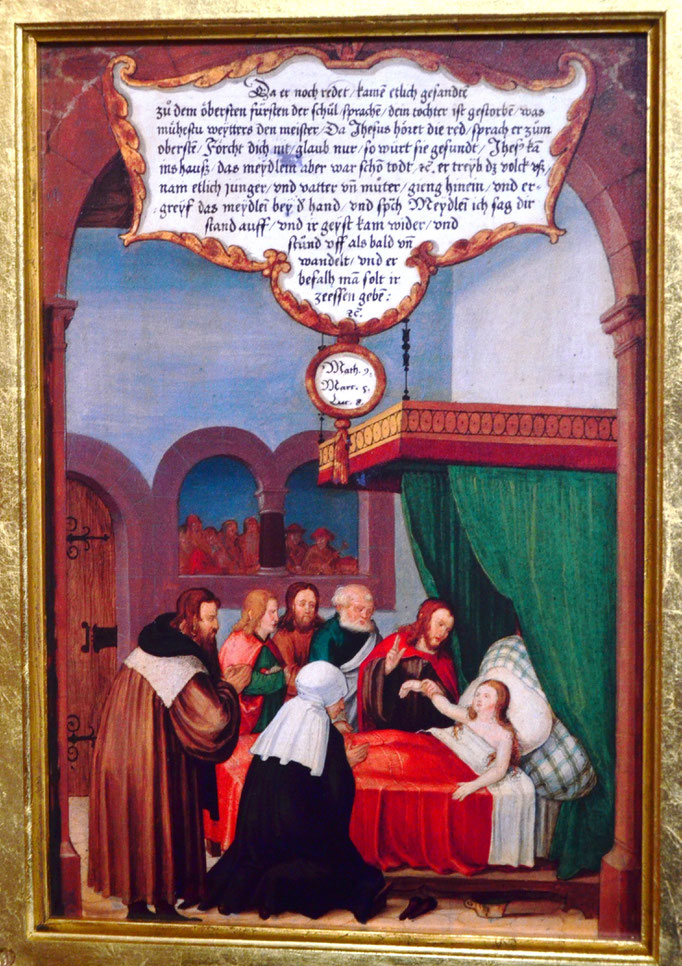 Da er noch redet / kamē etlich gesandte
zů dem öbersten fürsten der schůl sprachen / dein tochter ist gestorbē / was
mühestu weytters den meister / Da Jhesus hözet die red / sprach er zům
oberstē / Förcht dich nit / glaub nur / so würt sie gesundt / Jhesꝰ kā
ins hauß / das meydlein aber war schō todt / ꝛc. er treyb dz volck vß /
nam etlich junger / vnd vatter vn̄ můter / gieng hinein / vnd er-
greyf das meydlei bey d̕ hand / vnd spch Meydlei ich sag dir
stand auff / vnd ir geyst kam wider / vnd
stůnd vff als bald vn̄
wandelt / vnd er
befalh mā solt ir
zeessen gebē :
ꝛc.
Math. 9.
Marc. 5.
Luc. 8.